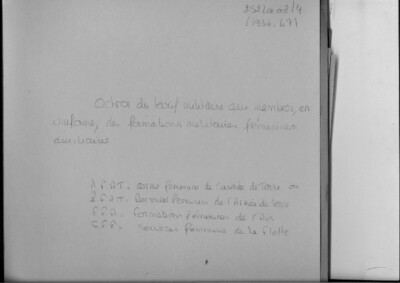 (1934-67)
Octroi du tarif militaire aux membres, en
uniforme, des formations militaires féminines
auxiliaires
A.F.A.T. féminine de l'armée de terre ou
P.F.A.T. Personnel Féminin de l'Armée de terre
F.F.A. Formations féminines de l'Air
S.F.F. Services féminins de la Flotte